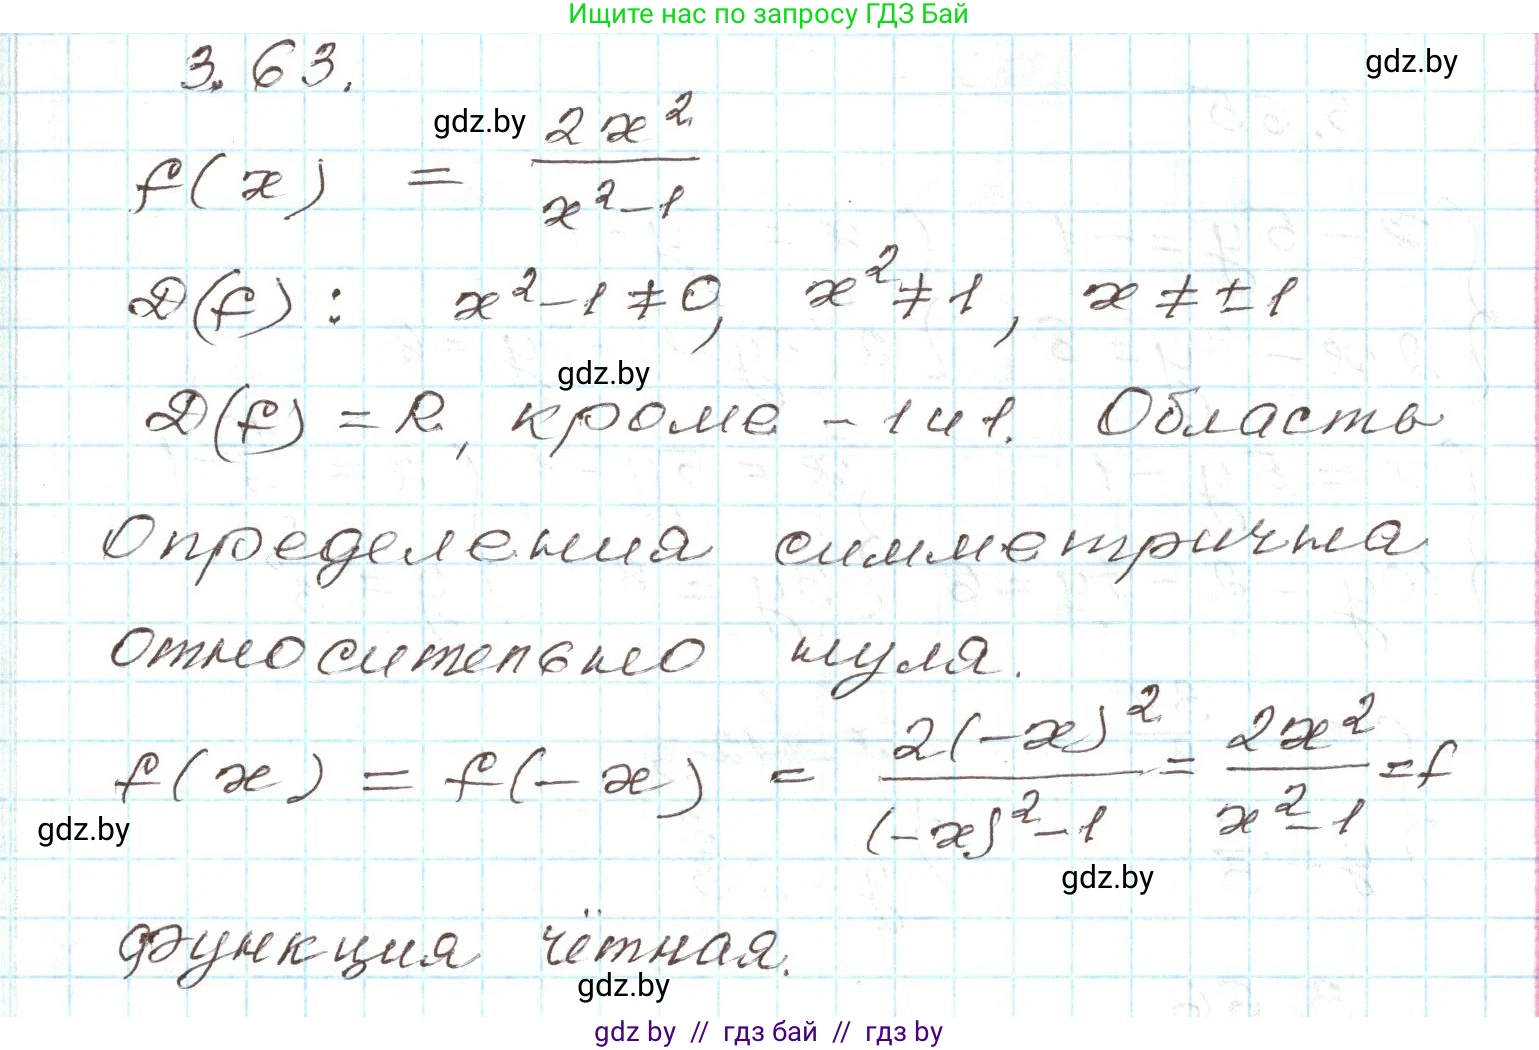 Ищите нас по запросу ГДЗ Бай
gdz.by
3.63.
gdz.by
f(x) = \frac{2x^2}{x^2-1}
D(f): x^2-1≠0, x^2≠1, x≠±1
gdz.by
D(f) = R, кроме -1 и 1. Область
определения симметрична
относительно нуля.
f(x) = f(-x) = \frac{2(-x)^2}{(-x)^2-1} = \frac{2x^2}{x^2-1} = f
gdz.by
gdz.by
функция чётная.
gdz.by
gdz by // гдз бай // гдз by